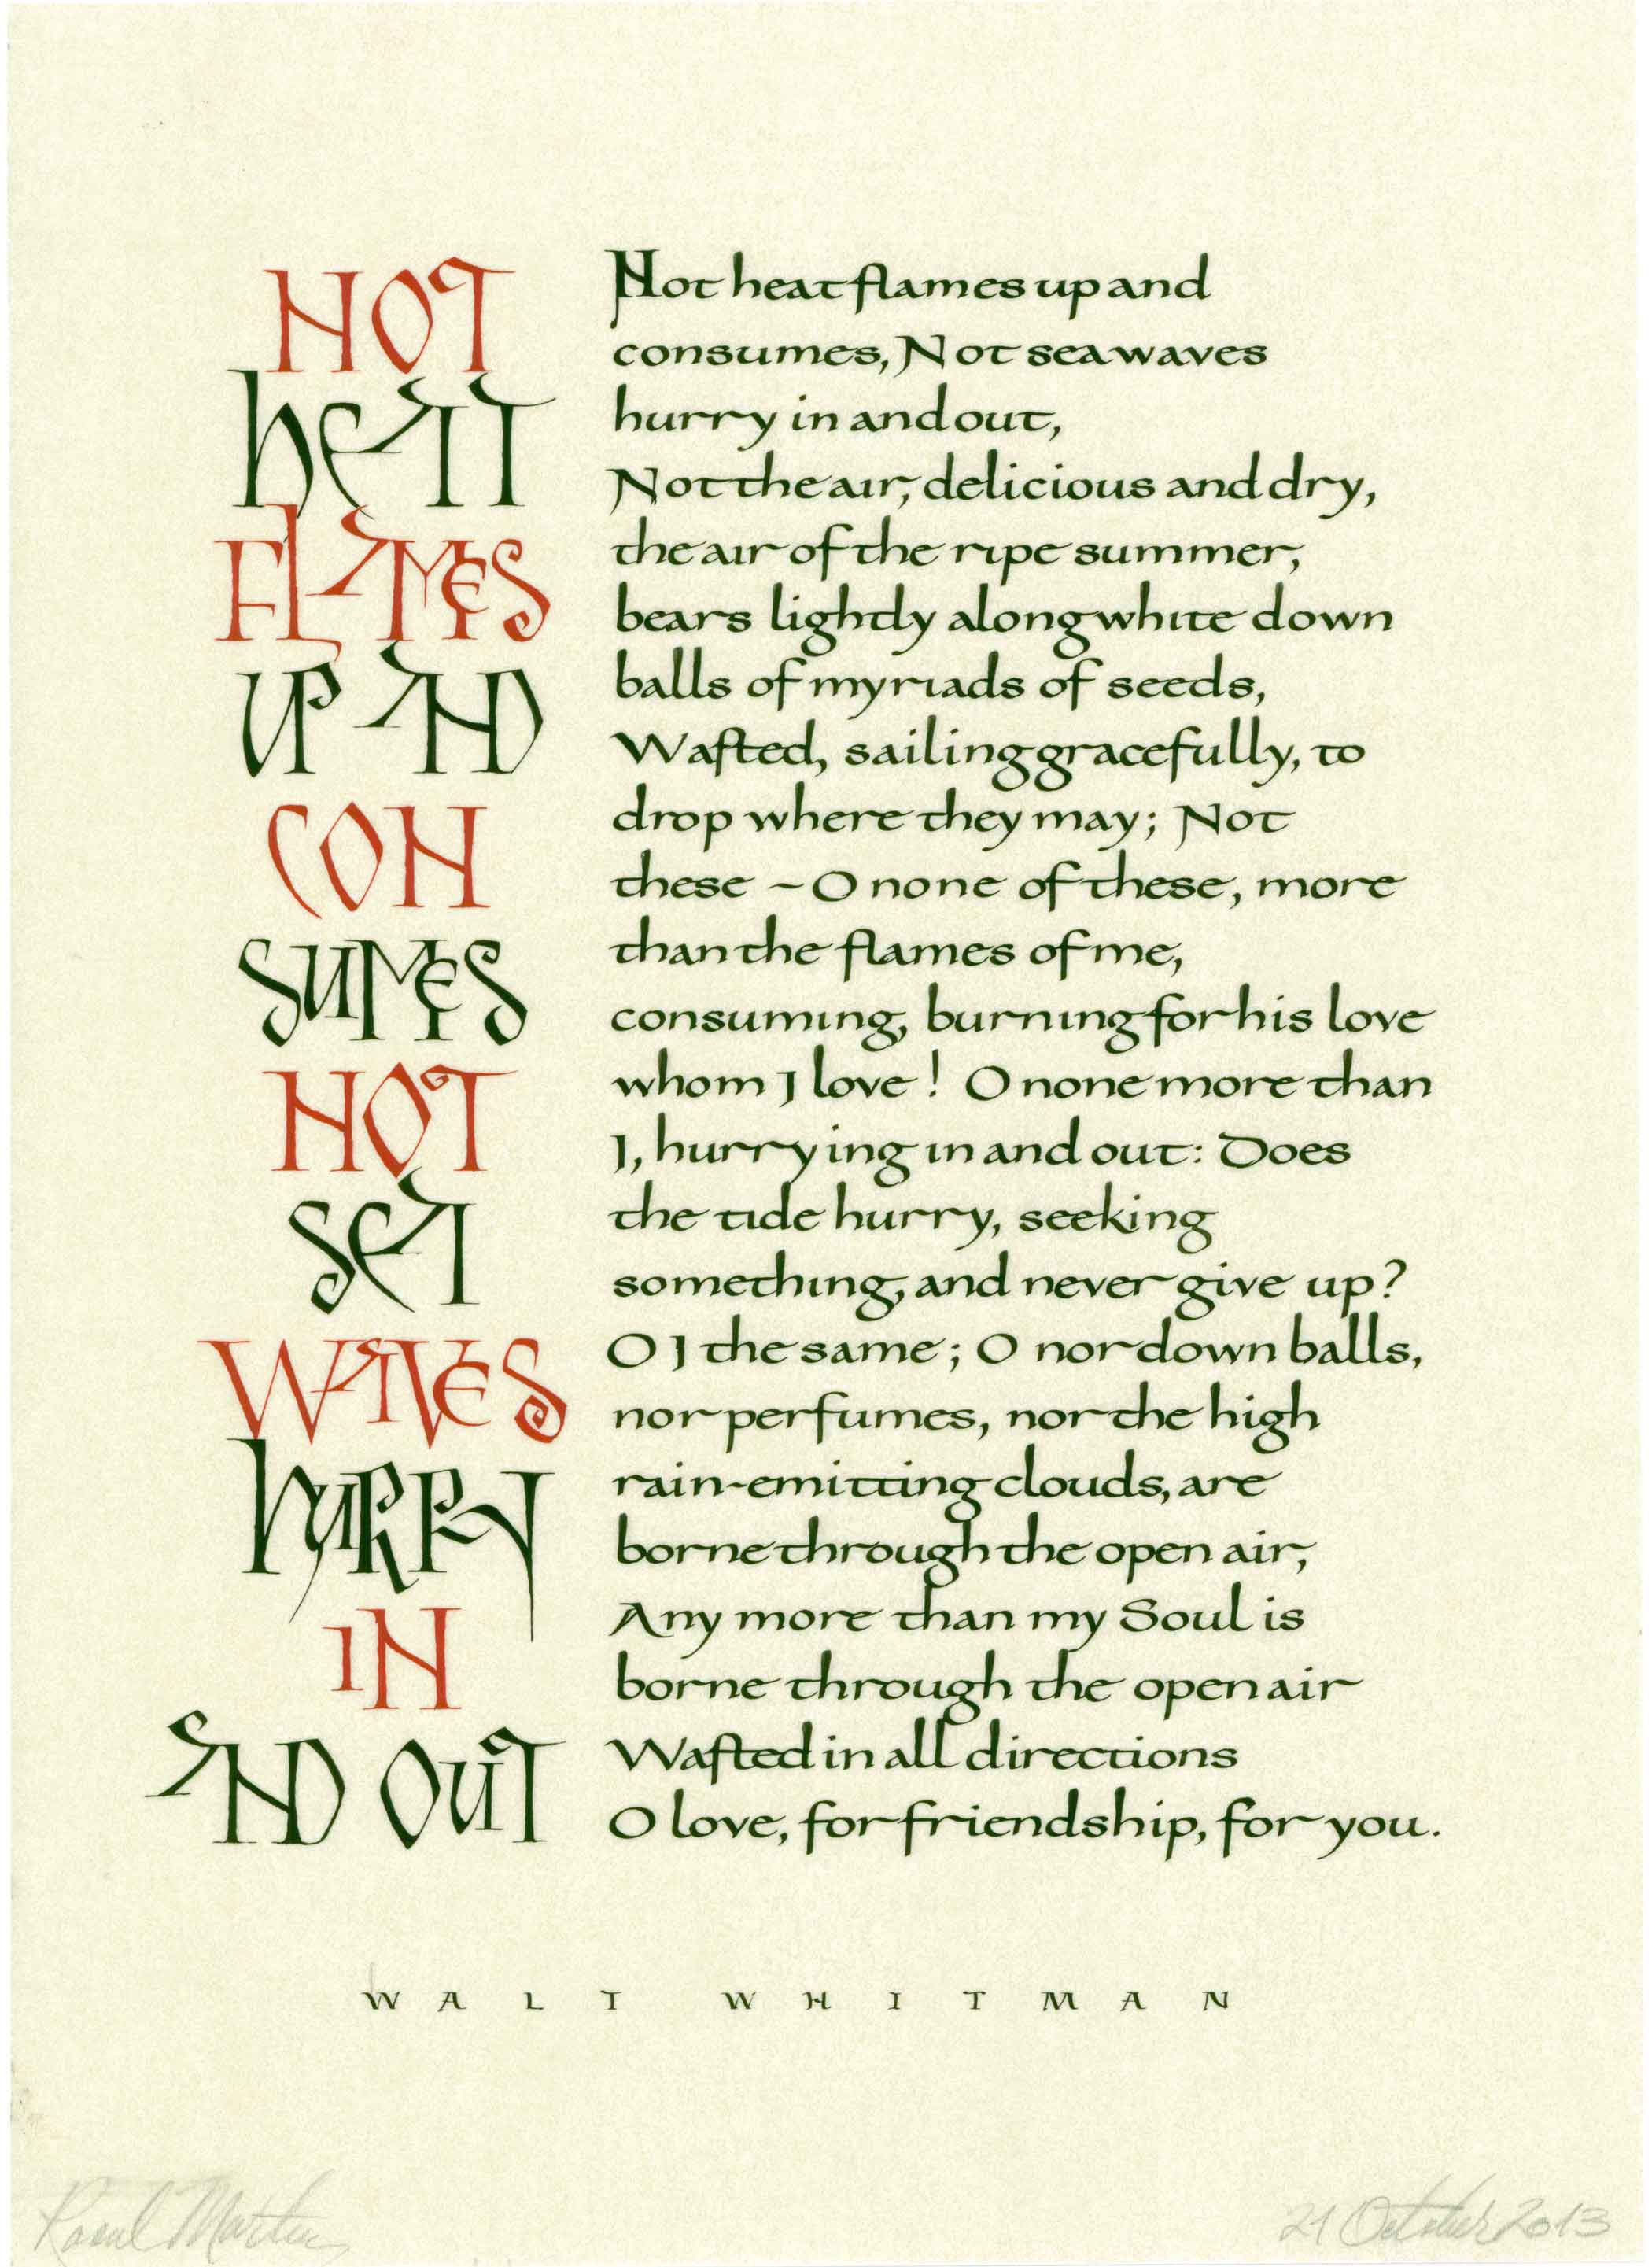 NOT
HEAT
FLAMES
UP AND
CON
SUMES
NOT
SEA
WAVES
HURRY
IN
AND OUT
Not heat flames up and
consumes, Not sea waves
hurry in and out,
Not the air, delicious and dry,
the air of the ripe summer,
bears lightly along white down
balls of myriads of seeds,
Wafted, sailing gracefully, to
drop where they may; Not
these – O none of these, more
than the flames of me,
consuming, burning for his love
whom I love! O none more than
I, hurrying in and out: Does
the tide hurry, seeking
something, and never give up?
O I the same; O nor down balls,
nor perfumes, nor the high
rain-emitting clouds, are
borne through the open air,
Any more than my Soul is
borne through the open air
Wafted in all directions
O love, for friendship, for you.
WALT WHITMAN
Raoul Martin
21 October 2013